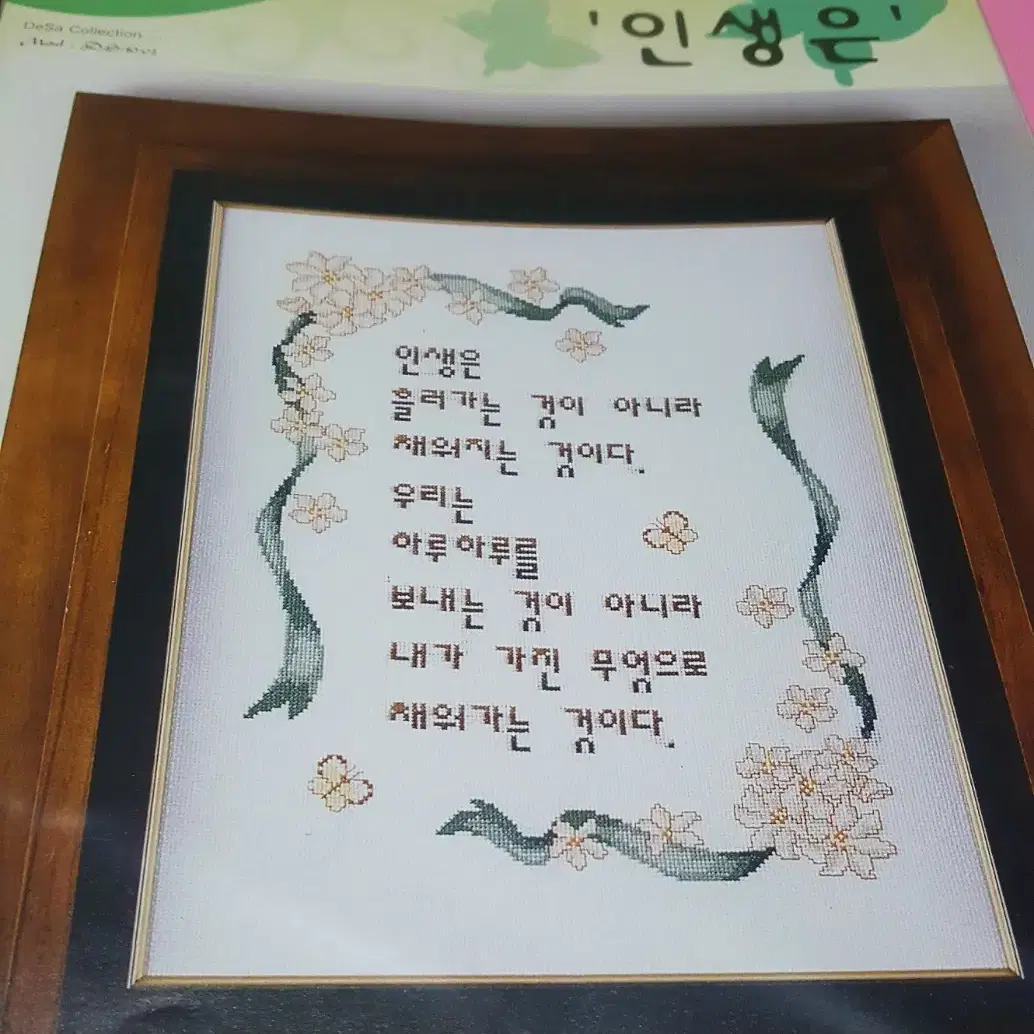 DeSa Collection
'인생은'
인생은
흘러가는 것이 아니라
채워지는 것이다.
우리는
하루하루를
보내는 것이 아니라
내가 가진 무엇으로
채워가는 것이다.